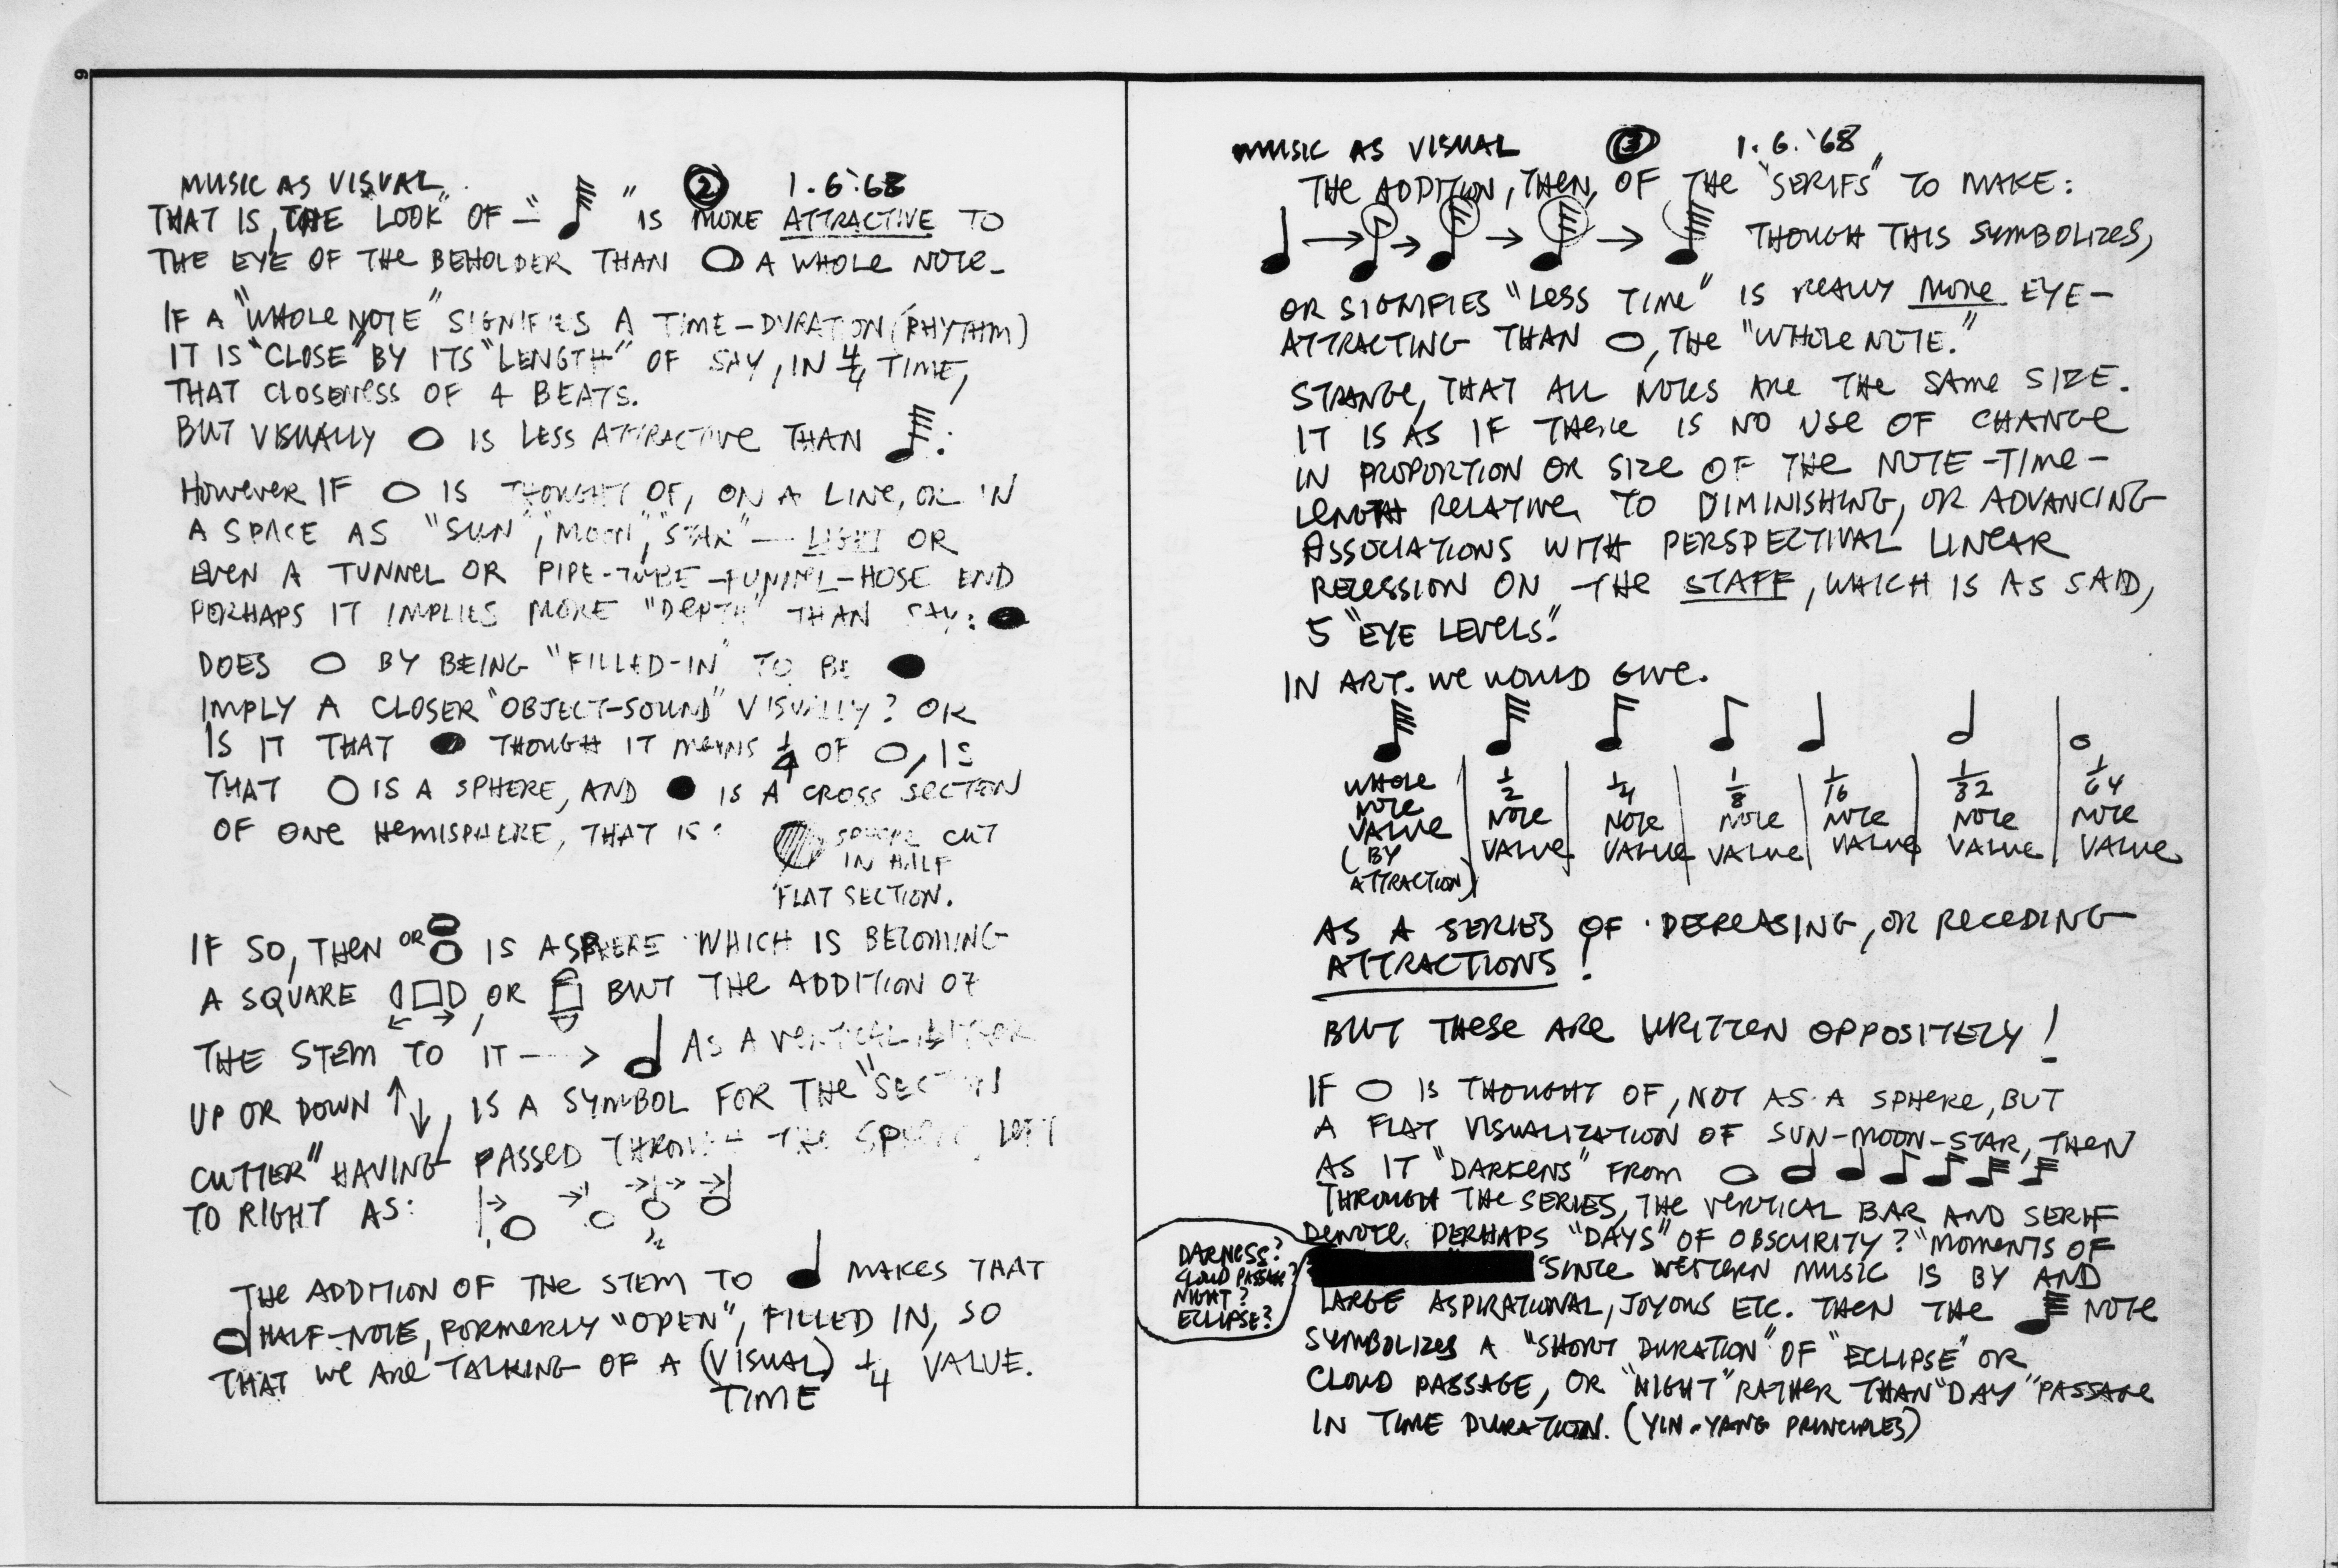 6
MUSIC AS VISUAL 2 1.6.'68
THAT IS, THE "LOOK" OF — " " IS MORE ATTRACTIVE TO
THE EYE OF THE BEHOLDER THAN A WHOLE NOTE—
IF A "WHOLE NOTE" SIGNIFIES A TIME-DURATION (RHYTHM)
IT IS "CLOSE" BY ITS "LENGTH" OF SAY, IN 4/4 TIME,
THAT CLOSENESS OF 4 BEATS.
BUT VISUALLY IS LESS ATTRACTIVE THAN :
HOWEVER IF IS THOUGHT OF, ON A LINE, OR IN
A SPACE AS "SUN", "MOON", "STAR" — LIGHT OR
EVEN A TUNNEL OR PIPE-TUBE-FUNNEL-HOSE END
PERHAPS IT IMPLIES MORE "DEPTH" THAN SAY:
DOES BY BEING "FILLED-IN" TO BE
IMPLY A CLOSER "OBJECT-SOUND" VISUALLY? OR
IS IT THAT THOUGH IT MEANS 1/4 OF , IS
THAT IS A SPHERE, AND IS A CROSS SECTION
OF ONE HEMISPHERE, THAT IS:
SPHERE CUT
IN HALF
FLAT SECTION.
IF SO, THEN OR IS A SPHERE WHICH IS BECOMING
A SQUARE , OR BUT THE ADDITION OF
THE STEM TO IT ---> AS A VERTICAL
UP OR DOWN ↑↓, IS A SYMBOL FOR THE "SECTION
CUTTER" HAVING PASSED THROUGH THE SPHERE LEFT
TO RIGHT AS:
THE ADDITION OF THE STEM TO MAKES THAT
HALF-NOTE, FORMERLY "OPEN", FILLED IN, SO
THAT WE ARE TALKING OF A (VISUAL) 1/4 VALUE.
TIME
MUSIC AS VISUAL 3 1.6.'68
THE ADDITION, THEN, OF THE "SERIFS" TO MAKE:
→ → → → THOUGH THIS SYMBOLIZES,
OR SIGNIFIES "LESS TIME" IS REALLY MORE EYE-
ATTRACTING THAN , THE "WHOLE NOTE."
STRANGE, THAT ALL NOTES ARE THE SAME SIZE.
IT IS AS IF THERE IS NO USE OF CHANGE
IN PROPORTION OR SIZE OF THE NOTE-TIME-
LENGTH RELATIVE TO DIMINISHING, OR ADVANCING
ASSOCIATIONS WITH PERSPECTIVAL LINEAR
RECESSION ON THE STAFF, WHICH IS AS SAID,
5 "EYE LEVELS."
IN ART. WE WOULD GIVE.
WHOLE NOTE VALUE (BY ATTRACTION)
1/2 NOTE VALUE
1/4 NOTE VALUE
1/8 NOTE VALUE
1/16 NOTE VALUE
1/32 NOTE VALUE
1/64 NOTE VALUE
AS A SERIES OF DECREASING, OR RECEDING
ATTRACTIONS!
BUT THESE ARE WRITTEN OPPOSITELY!
IF IS THOUGHT OF, NOT AS A SPHERE, BUT
A FLAT VISUALIZATION OF SUN-MOON-STAR, THEN
AS IT "DARKENS" FROM
THROUGH THE SERIES, THE VERTICAL BAR AND SERIF
DENOTE PERHAPS "DAYS" OF OBSCURITY? "MOMENTS OF
DARNESS?
CLOUD PASSAGE?
NIGHT?
ECLIPSE?
" SINCE WESTERN MUSIC IS BY AND
LARGE ASPIRATIONAL, JOYOUS ETC. THEN THE NOTE
SYMBOLIZES A "SHORT DURATION" OF "ECLIPSE" OR
CLOUD PASSAGE, OR "NIGHT" RATHER THAN "DAY" PASSAGE
IN TIME DURATION. (YIN-YANG PRINCIPLES)